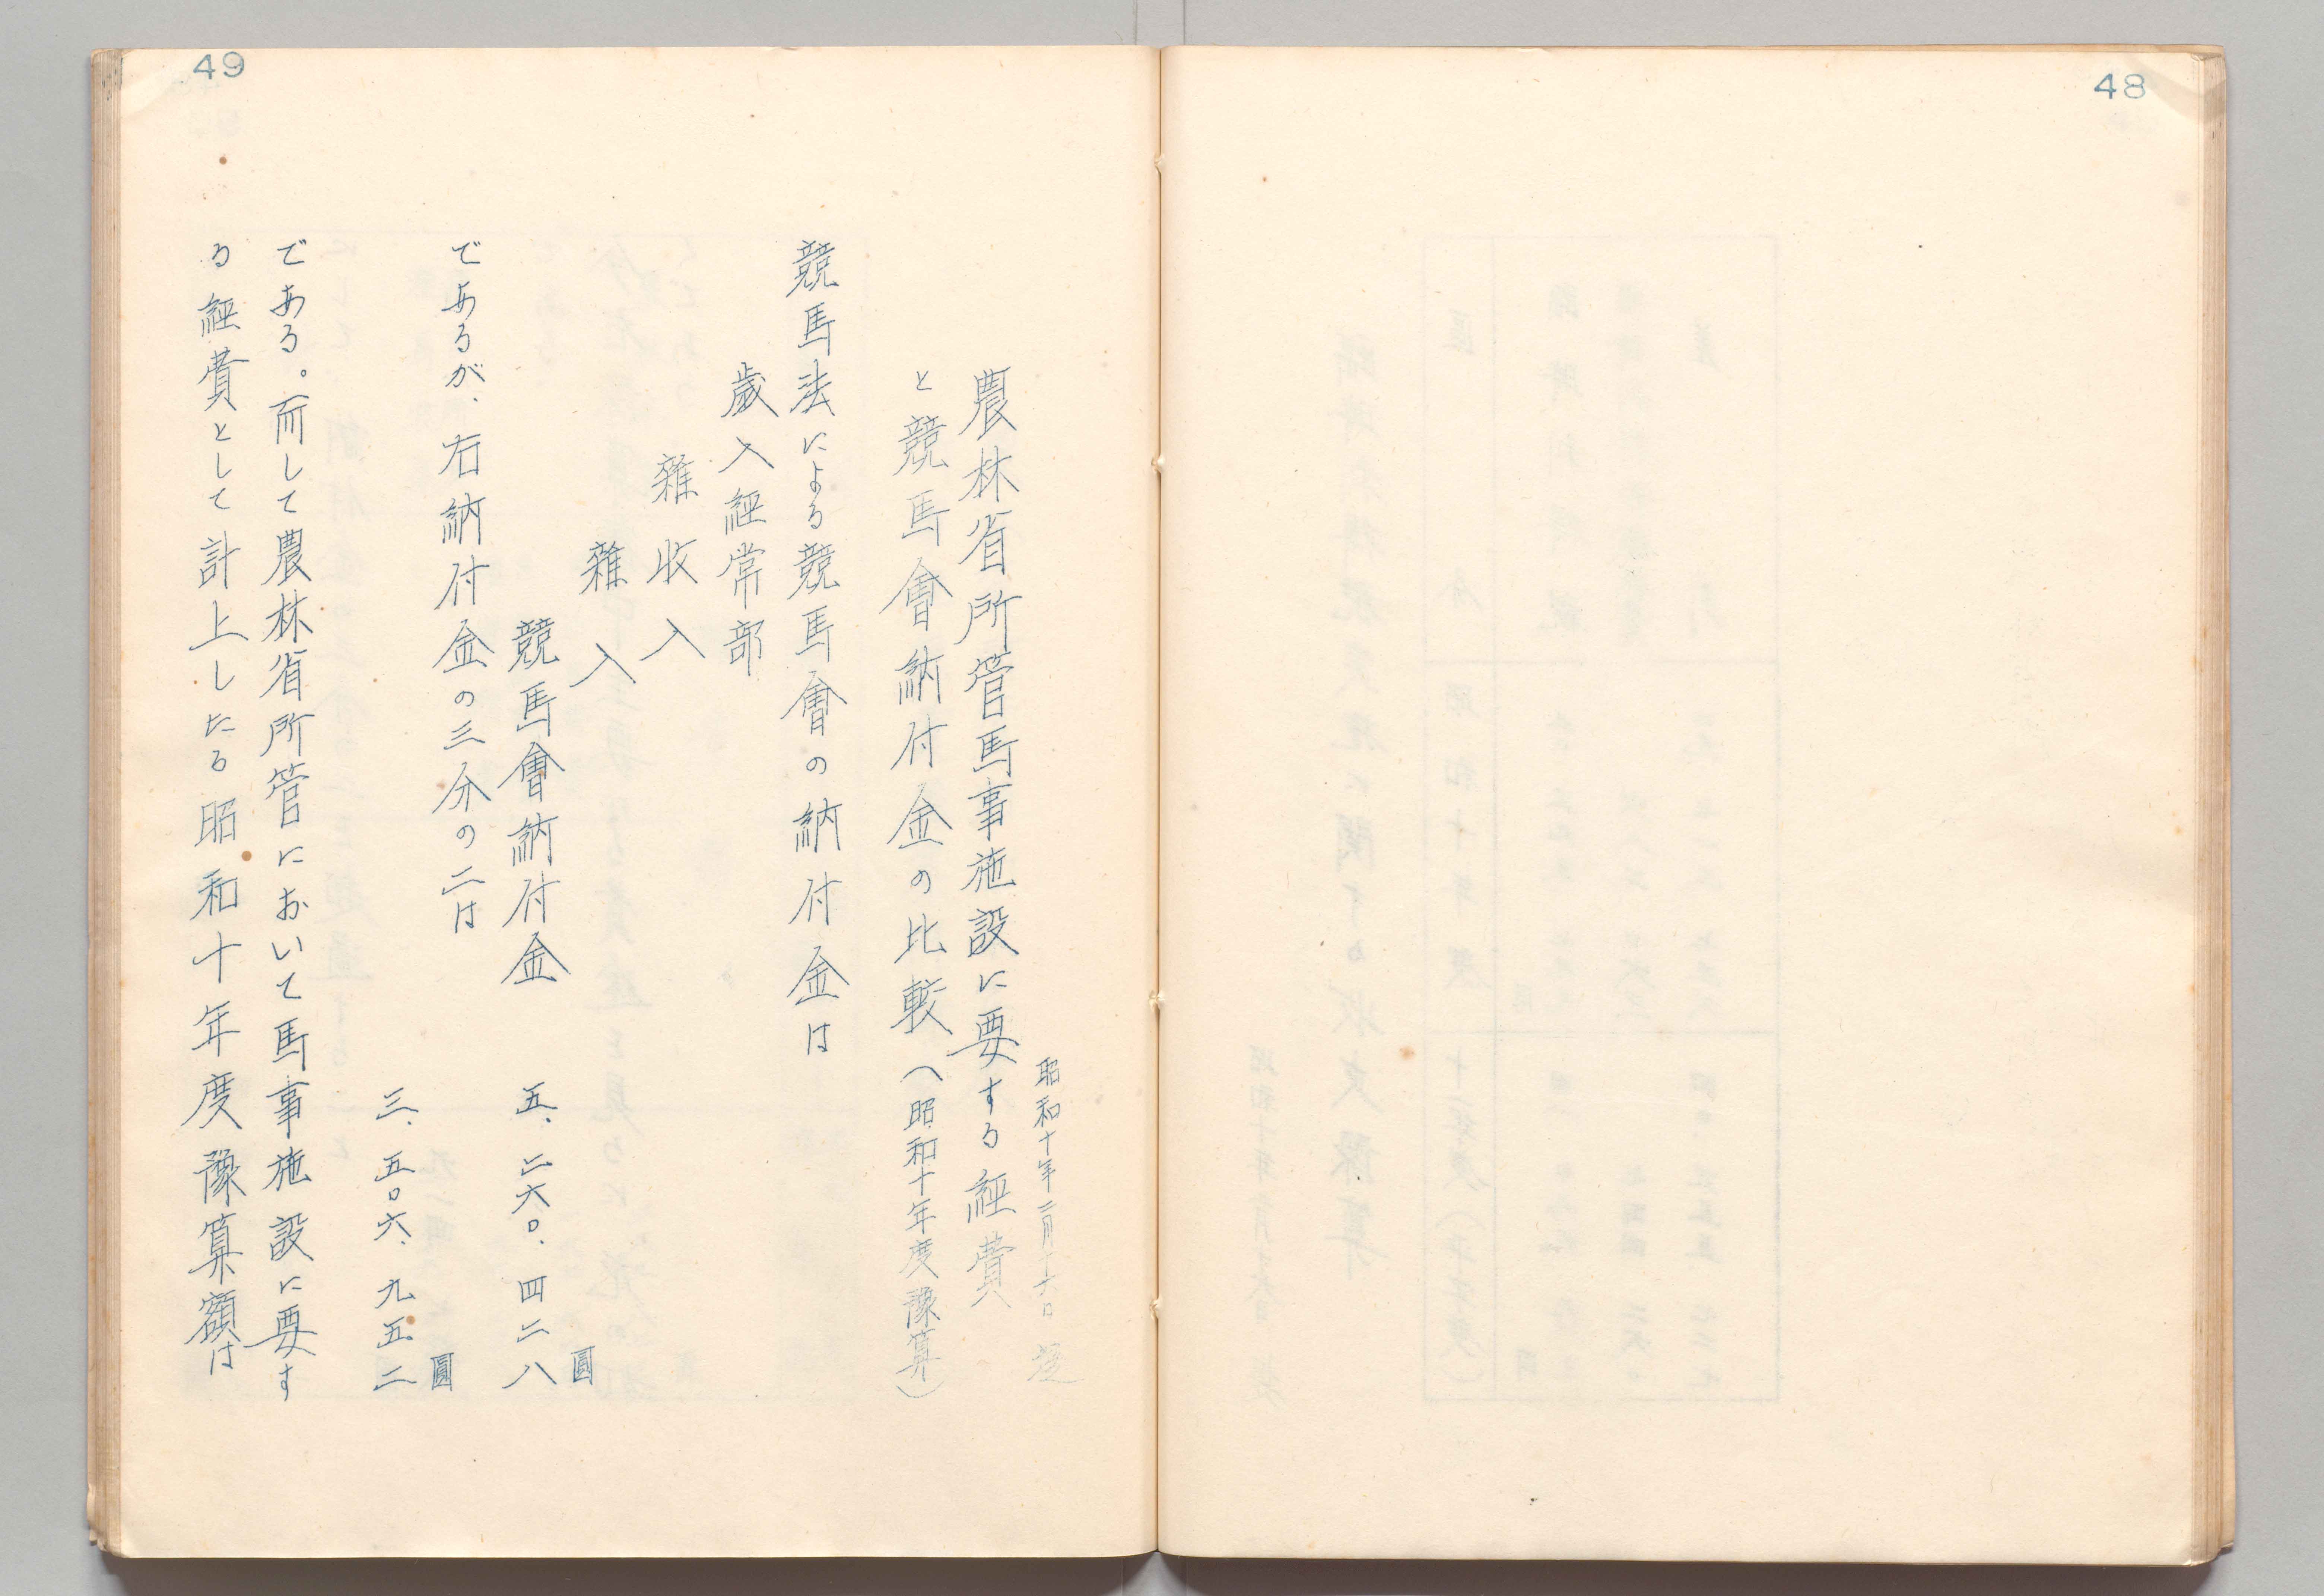 48
49
昭和十年二月十六日
農林省所管馬事施設に要する經費
と競馬會納付金の比較(昭和十年度豫算)
競馬法による競馬會の納付金は
歲入經常部
雜收入
雜入
圓
競馬會納付金 五、二六〇、四二八
であるが、右納付金の三分の二は
圓
三、五〇六、九五二
である。而して農林省所管において馬事施設に要す
る經費として計上したる昭和十年度豫算額は